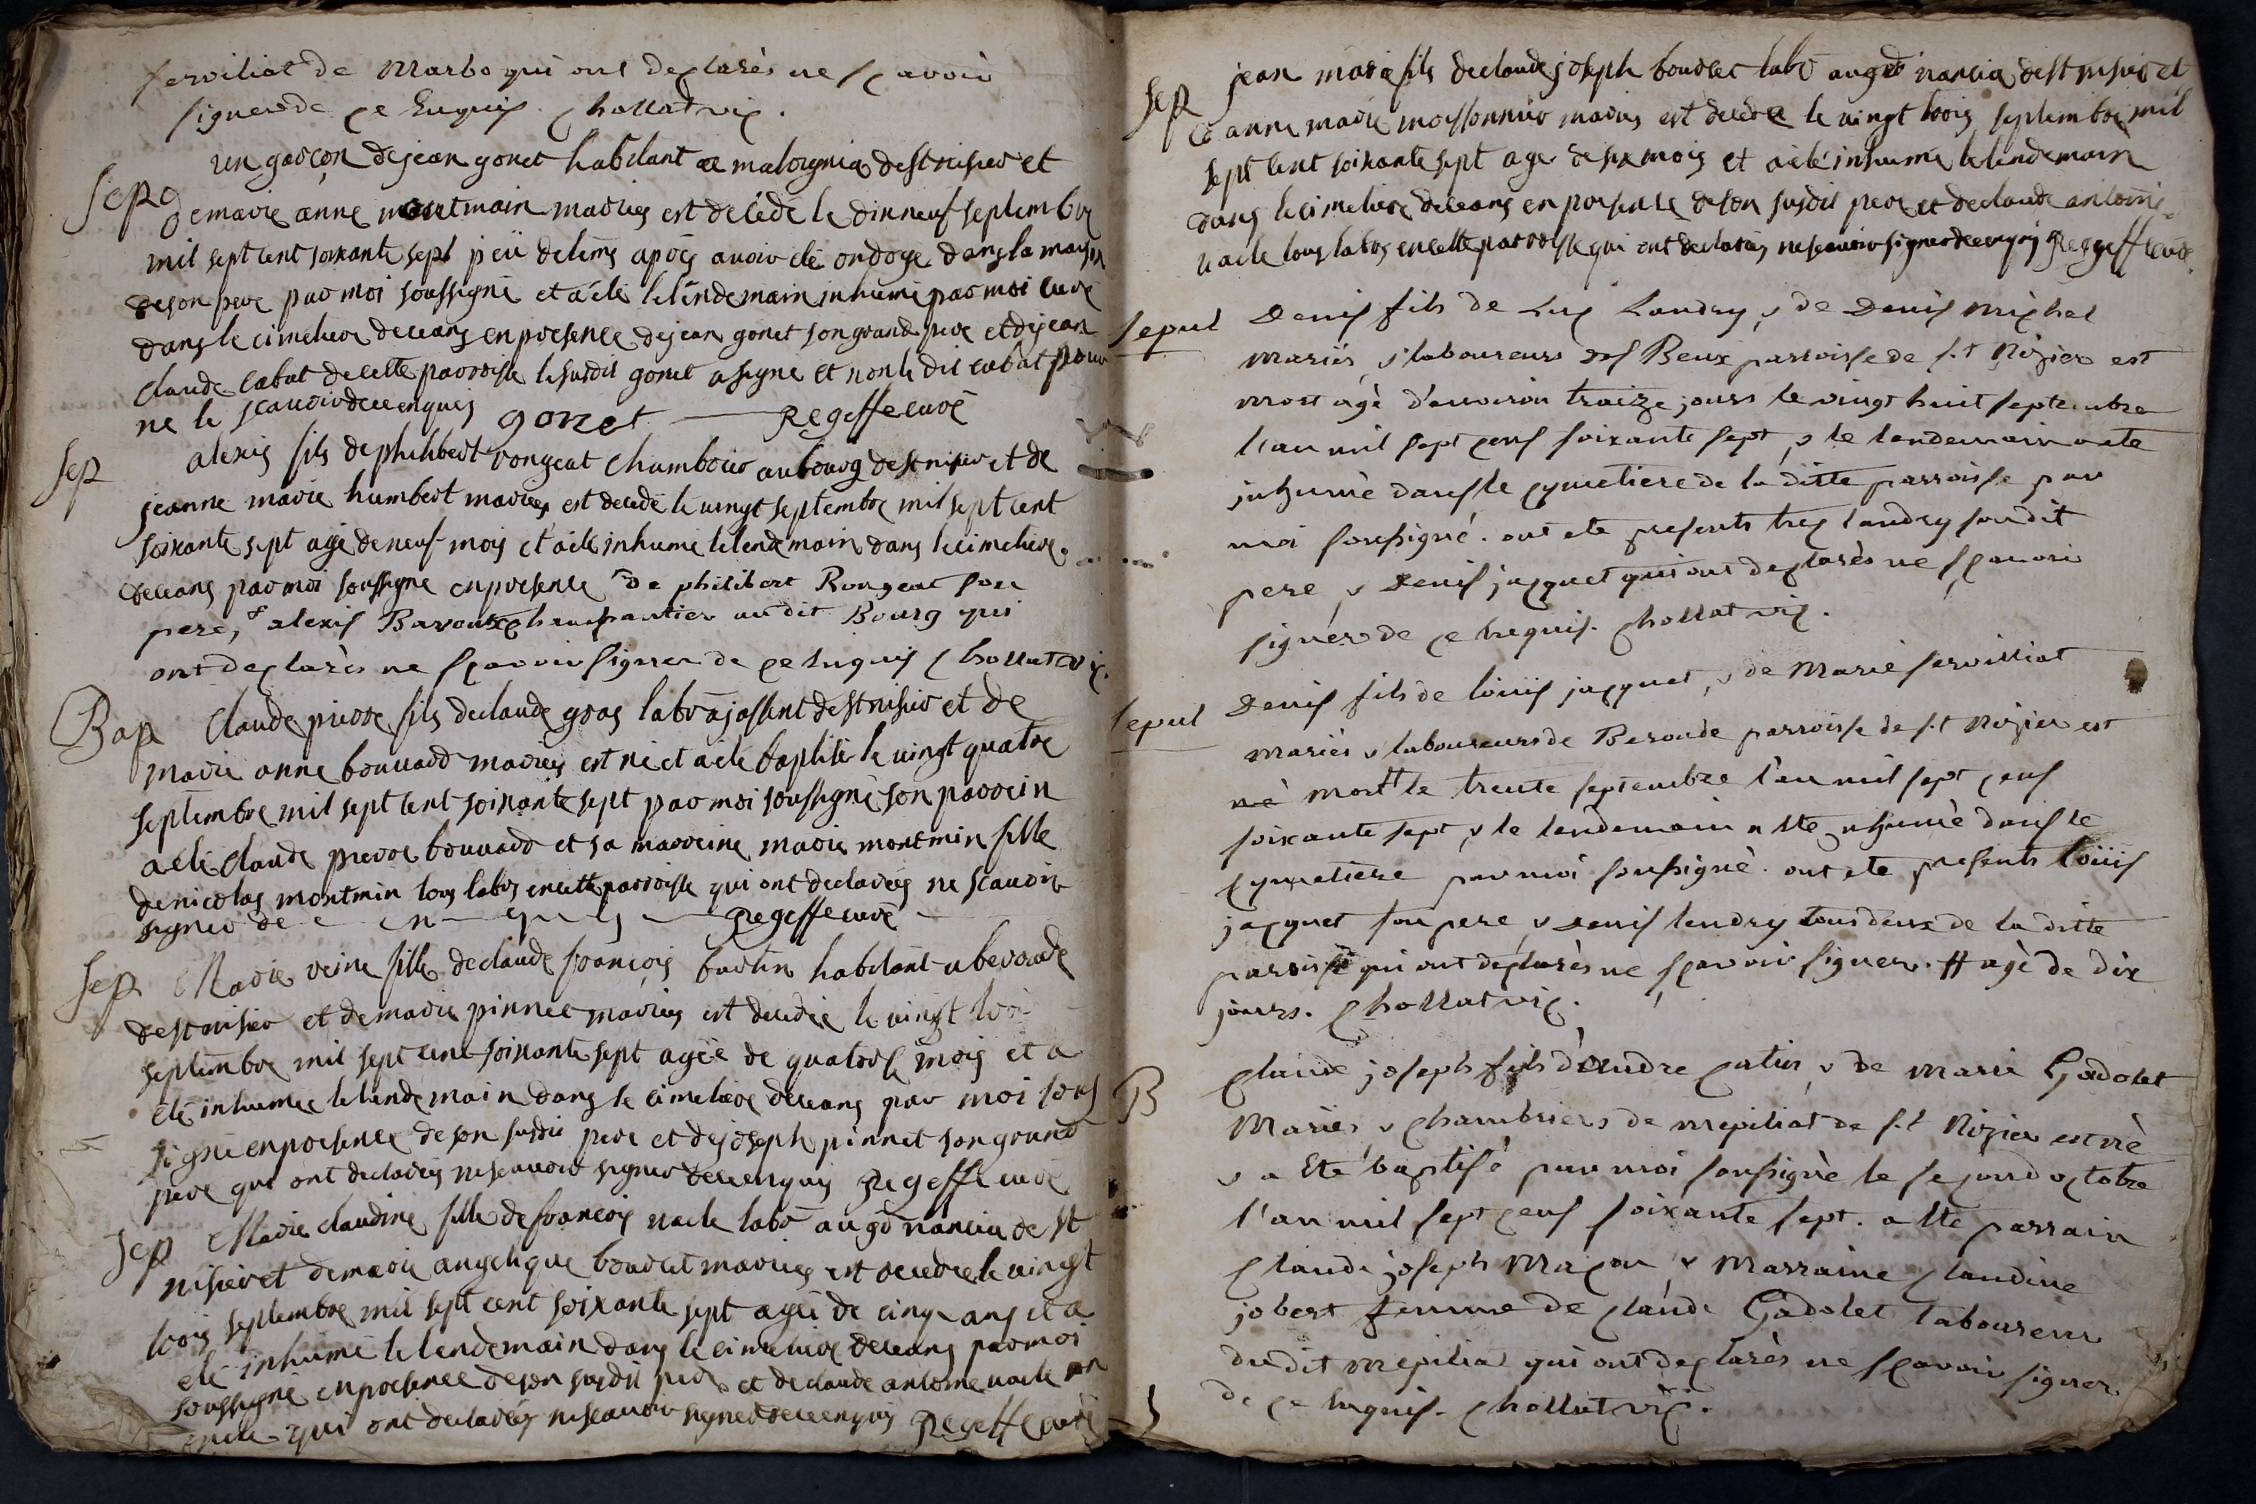 serviliat de Marbo qui ont declarès ne sçavoir
signer de ce Enquis. Chollat vic.
Sep
un garçon de jean gonet habitant a malvignia de st nisier et
de marie anne montmain mariés est decédé le dixneuf septembre
mil sept cent soixante sept peü de tems après avoir eté ondoyé dans la maison
de son pere par moi soussigné et a eté le lendemain inhumé par moi curé
dans le cimetiere de ceans en presence de jean gonet son grand pere et de jean
claude cabut de cette parroisse le susdit gonet a signé et non le dit cabut pour
ne le scavoir de ce enquis gonet Regeffe curé
Sep
alexis fils de philibert rongeat chambrier au bourg de st nisier et de
jeanne marie humbert mariés est decedé le vingt septembre mil sept cent
soixante sept agé de neuf mois et a eté inhumé le lendemain dans le cimetiere
de ceans par moi soussigné en presence de philibert Rongeat son
pere, & alexis charpantier au dit Bourg qui
ont declarès ne sçavoir signer de ce enquis Chollat vic.
Bap
Claude pierre fils de claude gras labr a jassent de st nisier et de
marie anne bouvard mariés est né et a eté baptisé le vingt quatre
septembre mil sept cent soixante sept par moi soussigné son parrein
a eté claude pierre bouvard et sa marreine marie montmin fille
de nicolas montmin tous labrs en cette parroisse qui ont declarés ne scavoir
signer de c en qu is Regeffe curé
Sep
Marie reine fille de claude françois bartin habitant a beroude
de st nisier et de marie pinnet mariés est decedée le vingt troi
septembre mil sept cent soixante sept agée de quatorse mois et a
eté inhumée le lendemain dans le cimetiere de ceans par moi sous
signé en presence de son susdit pere et de joseph pinnet son grand
pere qui ont declarés ne scavoir signer de ce enquis Regeffe curé
Sep
Marie claudine fille de françois vacle labr au gd nancia de st
nisier et de marie angelique boudet mariés est decedée le vingt
trois septembre mil sept cent soixante sept agée de cinq ans et a
eté inhumé le lendemain dans le cimetiere de ceans par moi
soussigné en presence de son susdit pere et de claude antoine vacle son
oncle qui ont declarés ne scavoir signer de ce enquis Regeffe curé
Sep
jean marie fils de claude joseph boudet labr au gd nancia de st nisier et
de anne marie moissonnier mariés est decedé le vingt trois septembre mil
sept cent soixante sept agé de six mois et a eté inhumé le lendemain
dans le cimetiere de ceans en presence de son susdit pere et de claude antoine
vacle tous labrs en cette parroisse qui ont declarés ne scavoir signer de ce enquis Regeffe curé
Sepul
Denis fils de Luc Landry, & de Denis Michel
mariés, & laboureurs des Beux parroisse de s.t Nizier est
mort agé d'environ traize jours le vingt huit septembre
l'an mil sept cens soixante sept, & le lendemain a ete
inhumé dans le cymetiere de la ditte parroisse par
moi soussigné. ont ete presents luc landry son dit
pere, & Denis jacquet qui ont declarès ne sçavoir
signer de ce Enquis. Chollat vic.
Sepul
Denis fils de Loüis jacquet, & de Marie servilliat
mariés & laboureurs de Beroude parroisse de s.t Nizier est
né mort # le trente septembre l'an mil sept cens
soixante sept, & le lendemain a été inhumé dans le
cymetiere par moi soussigné. ont ete presents Loüis
jacquet son pere & Denis landry tous deux de la ditte
parroisse qui ont declarès ne sçavoir signer. # agé de dix
jours. Chollat vic.
B
Claude joseph fils d'andre catin, & de marie Gadolet
Mariés, & chambriers de mepiliat de s.t Nizier est né
& a Eté baptisé par moi soussigné le second octobre
l'an mil sept cens soixante sept. a été parrain
Claude joseph Maçon & Marraine Claudine
jobert femme de claude Gadolet laboureur
dudit mepiliat qui ont declarès ne sçavoir signer
de ce Enquis. Chollat vic.